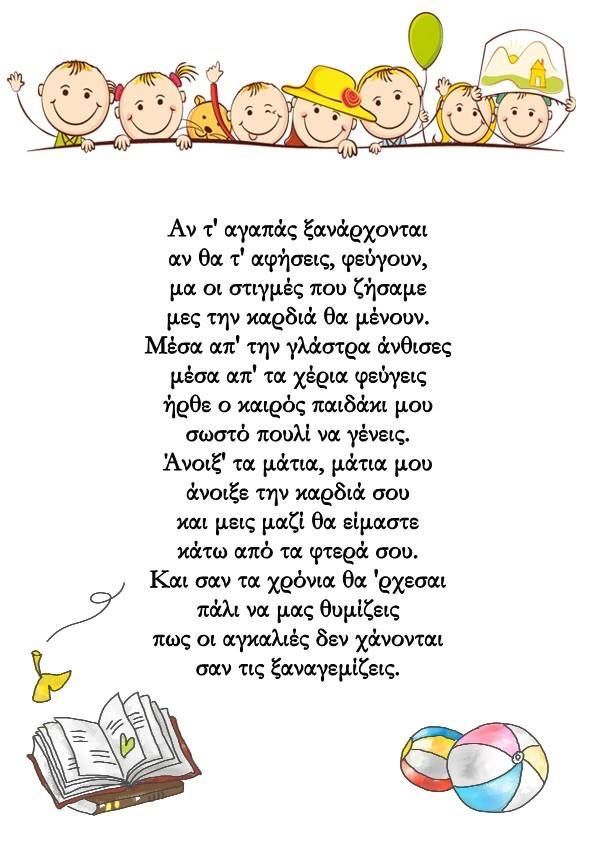 Αν τ' αγαπάς ξανάρχονται
αν θα τ' αφήσεις, φεύγουν,
μα οι στιγμές που ζήσαμε
μες την καρδιά θα μένουν.
Μέσα απ' την γλάστρα άνθισες
μέσα απ' τα χέρια φεύγεις
ήρθε ο καιρός παιδάκι μου
σωστό πουλί να γένεις.
Άνοιξ' τα μάτια, μάτια μου
άνοιξε την καρδιά σου
και μεις μαζί θα είμαστε
κάτω από τα φτερά σου.
Και σαν τα χρόνια θα 'ρχεσαι
πάλι να μας θυμίζεις
πως οι αγκαλιές δεν χάνονται
σαν τις ξαναγεμίζεις.